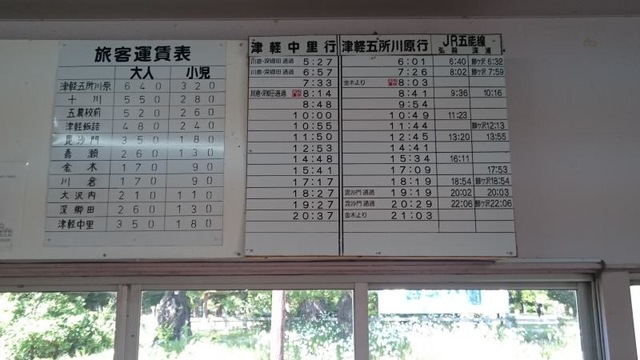 旅客運賃表
大人 小児
津軽五所川原 640 320
十川 550 280
五農校前 520 260
津軽飯詰 480 240
毘沙門 350 180
嘉瀬 260 130
金木 170 90
川倉 170 90
大沢内 210 110
深郷田 260 130
津軽中里 350 180
津軽中里行 津軽五所川原行 JR五能線
弘前 深浦
川倉・深郷田 通過 5:27 6:01 6:40 鰺ケ沢 6:32
川倉・深郷田 通過 6:57 7:26 8:02 鰺ケ沢 7:59
7:33 金木より 8:03
川倉・深郷田通過 8:14 8:41 9:36 10:16
8:48 9:54
10:00 10:49 11:23
10:55 11:44 鰺ケ沢12:13
11:50 12:45 13:20 13:55
12:53 14:41
14:48 15:34 16:11
15:41 17:09 17:53
17:17 18:19 18:54 鰺ケ沢18:54
18:27 毘沙門 通過 19:19 20:02 20:03
19:27 毘沙門 通過 20:29 22:06 鰺ケ沢22:06
20:37 金木より 21:03